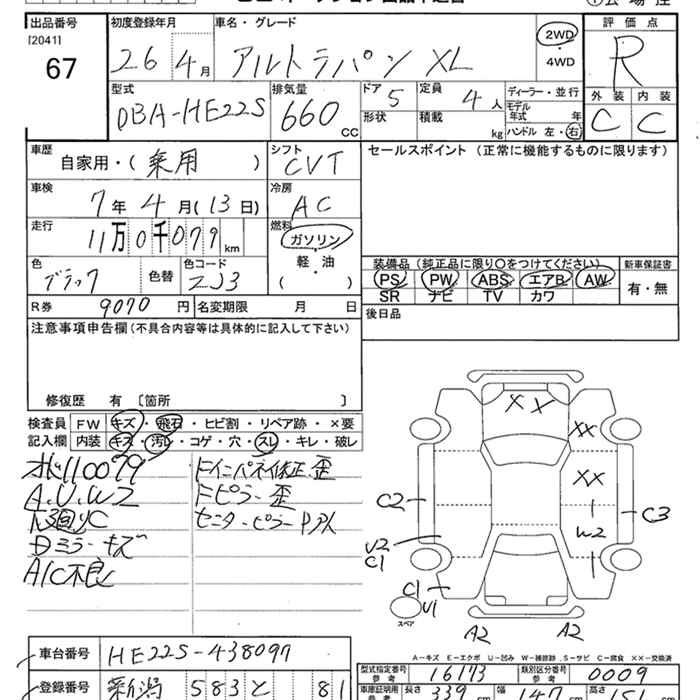 出品番号 初度登録年月 車名・グレード 評価点
[2041]
67 26 4月 アルトラパン XL 2WD・4WD R
型式 排気量 ドア 定員 ディーラー・並行 外装 内装
DBA-HE22S 660cc 5 4人 モデル年式 年 C C
形状 積載 kg ハンドル 左・右
車歴 シフト セールスポイント（正常に機能するものに限ります）
自家用・(乗用) CVT
車検 冷房
7年4月(13日) AC
走行 燃料
11万0千079km ガソリン
軽・油
( )
色 色替 色コード 装備品（純正品に限り○をつけてください） 新車保証書
ブラック ZJ3 PS PW ABS エアB AW 有・無
SR ナビ TV カワ
R券 9070円 名変期限 月 日 後日品
注意事項申告欄（不具合内容等は具体的に記入して下さい）
修復歴 有 〔箇所 〕
検査員 FW キズ・飛石・ヒビ割・リペア跡・×要
記入欄 内装 キズ・汚レ・コゲ・穴・スレ・キレ・破レ
A.U.W2 Fピラー歪
センターピラー
Dミラーキズ
A/C不良
X X
XX
XX
C2 C3
W2
U2
C1
C1
U1
スペア
A2 A2
A−キズ E−エクボ U−凹み W−補修跡 S−サビ C−腐食 XX−交換済
車台番号 HE22S-438097
型式指定番号 参考 16173 類別区分番号 参考 0009
登録番号 新潟 583 と 81
車庫証明用 参考 長さ 339 幅 147 高さ 151